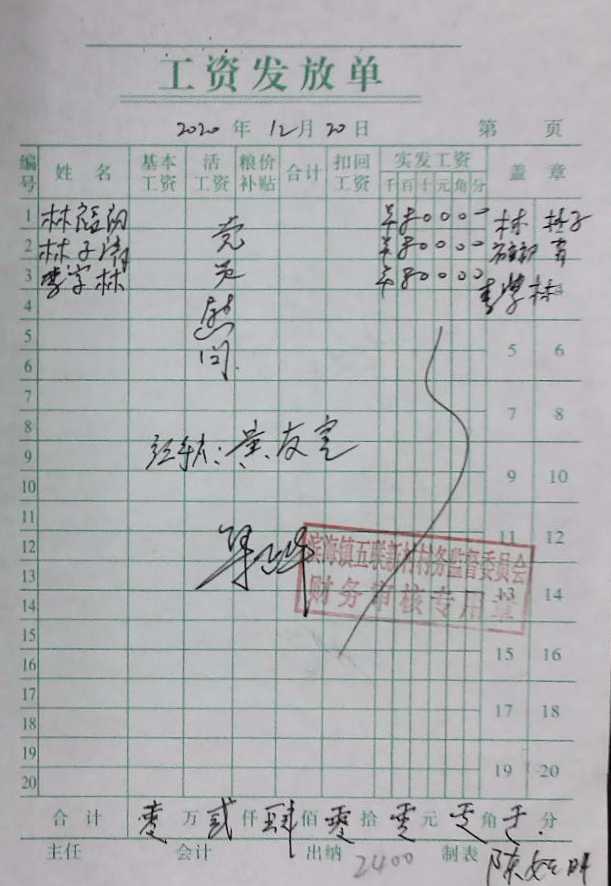 工资发放单
2020 年 12 月 20 日 第 页
编号 姓名 基本工资 活工资 粮价补贴 合计 扣回工资 实发工资 千 百 十 元 角 分 盖章
1 林 80000 林
2 林子 80000
3 李字林 80000 李学林
党员慰问
4
5 5 6
6
7 7 8
8
9 经手人：黄友宽 9 10
10
11 11 12
12
滨海镇五联新村村务监督委员会
财务审核专用章
13 13 14
14
15 15 16
16
17 17 18
18
19 19 20
20
合计 零 万 贰 仟 肆 佰 零 拾 零 元 零 角 零 分
主任 会计 出纳 2400 制表 陈